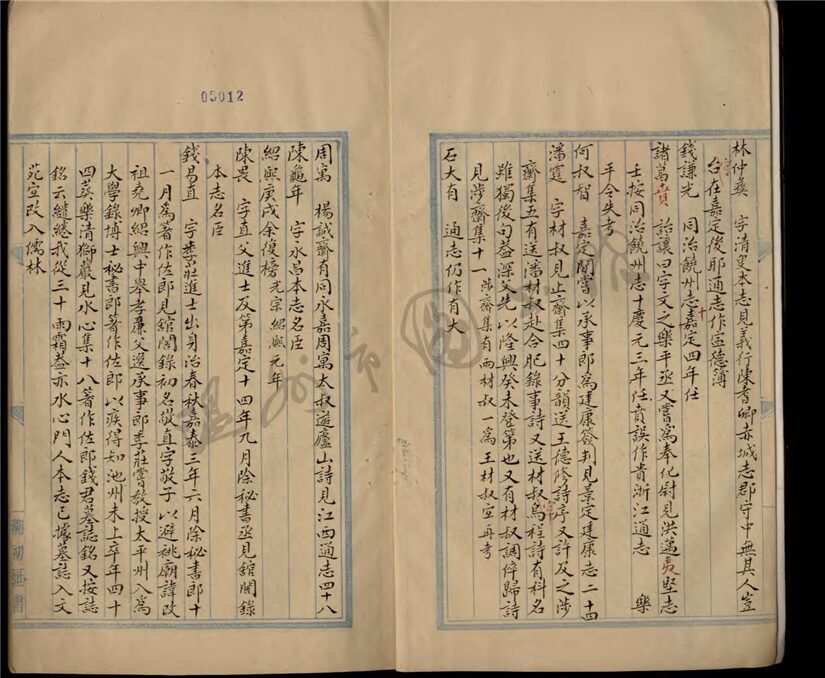 林仲彝 字清叟本志見義行陳耆卿赤城志郡守中無其人豈
台在嘉定後耶通志作宣德簿
錢謙光 同治饒州志嘉定四年任
十
諸葛賁 詒讓曰字文之樂平丞又嘗為奉化尉見洪邁夷堅志
壬按同治饒州志十慶元三年任賁誤作貴浙江通志 樂
平令失考
何叔智 嘉定間嘗以承事郎為建康簽判見景定建康志二十四
潘霆 字材叔見止齋集四十分韻送王德修詩序又許及之涉
齋集五有送潘材叔赴合肥錄事詩又送材叔烏程詩有科名
雖獨後句葢深父先以隆興癸未登第也又有材叔調倅歸詩
見涉齋集十一 涉齋集有兩材叔一為王材叔宜再考
石大有 通志仍作有大
05012
周萬 楊誠齋有同永嘉周萬太叔遊廬山詩見江西通志四十八
陳龜年 字永昌本志名臣
紹興庚戌余復榜 光宗紹興元年
陳畏 字直父進士及第嘉定十四年九月除秘書丞見舘閣錄
本志名臣
錢易直 字季莊進士出身治春秋嘉泰三年六月除秘書郎十
一月為著作佐郎見舘閣錄初名敬直字敬子以避祧廟諱改
祖堯卿紹興中舉孝廉父遷承事郎季莊嘗敎授太平州入為
大學錄博士秘書郎著作佐郎以疾得知池州未上卒年四十
四葬樂清獅巖見水心集十八著作佐郎錢君墓誌銘又按誌
銘云繾綣我從三十雨霜葢亦水心門人本志已據墓誌入文
苑宜改入儒林